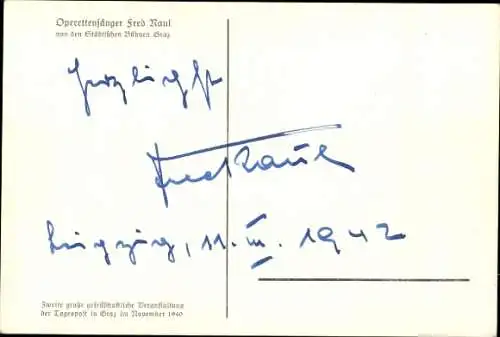 Operettensänger Fred Raul
von den Städtischen Bühnen, Graz
Herzlichst
Fred Raul
11. III. 1942
Zweite große gesellschaftliche Veranstaltung
der Tagespost in Graz im November 1940